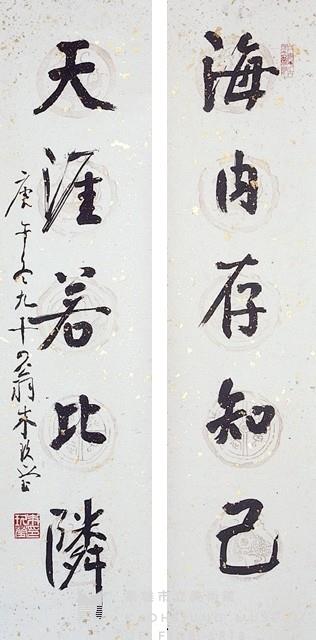 海内存知己
天涯若比隣
庚午冬九十四翁朱玖瑩